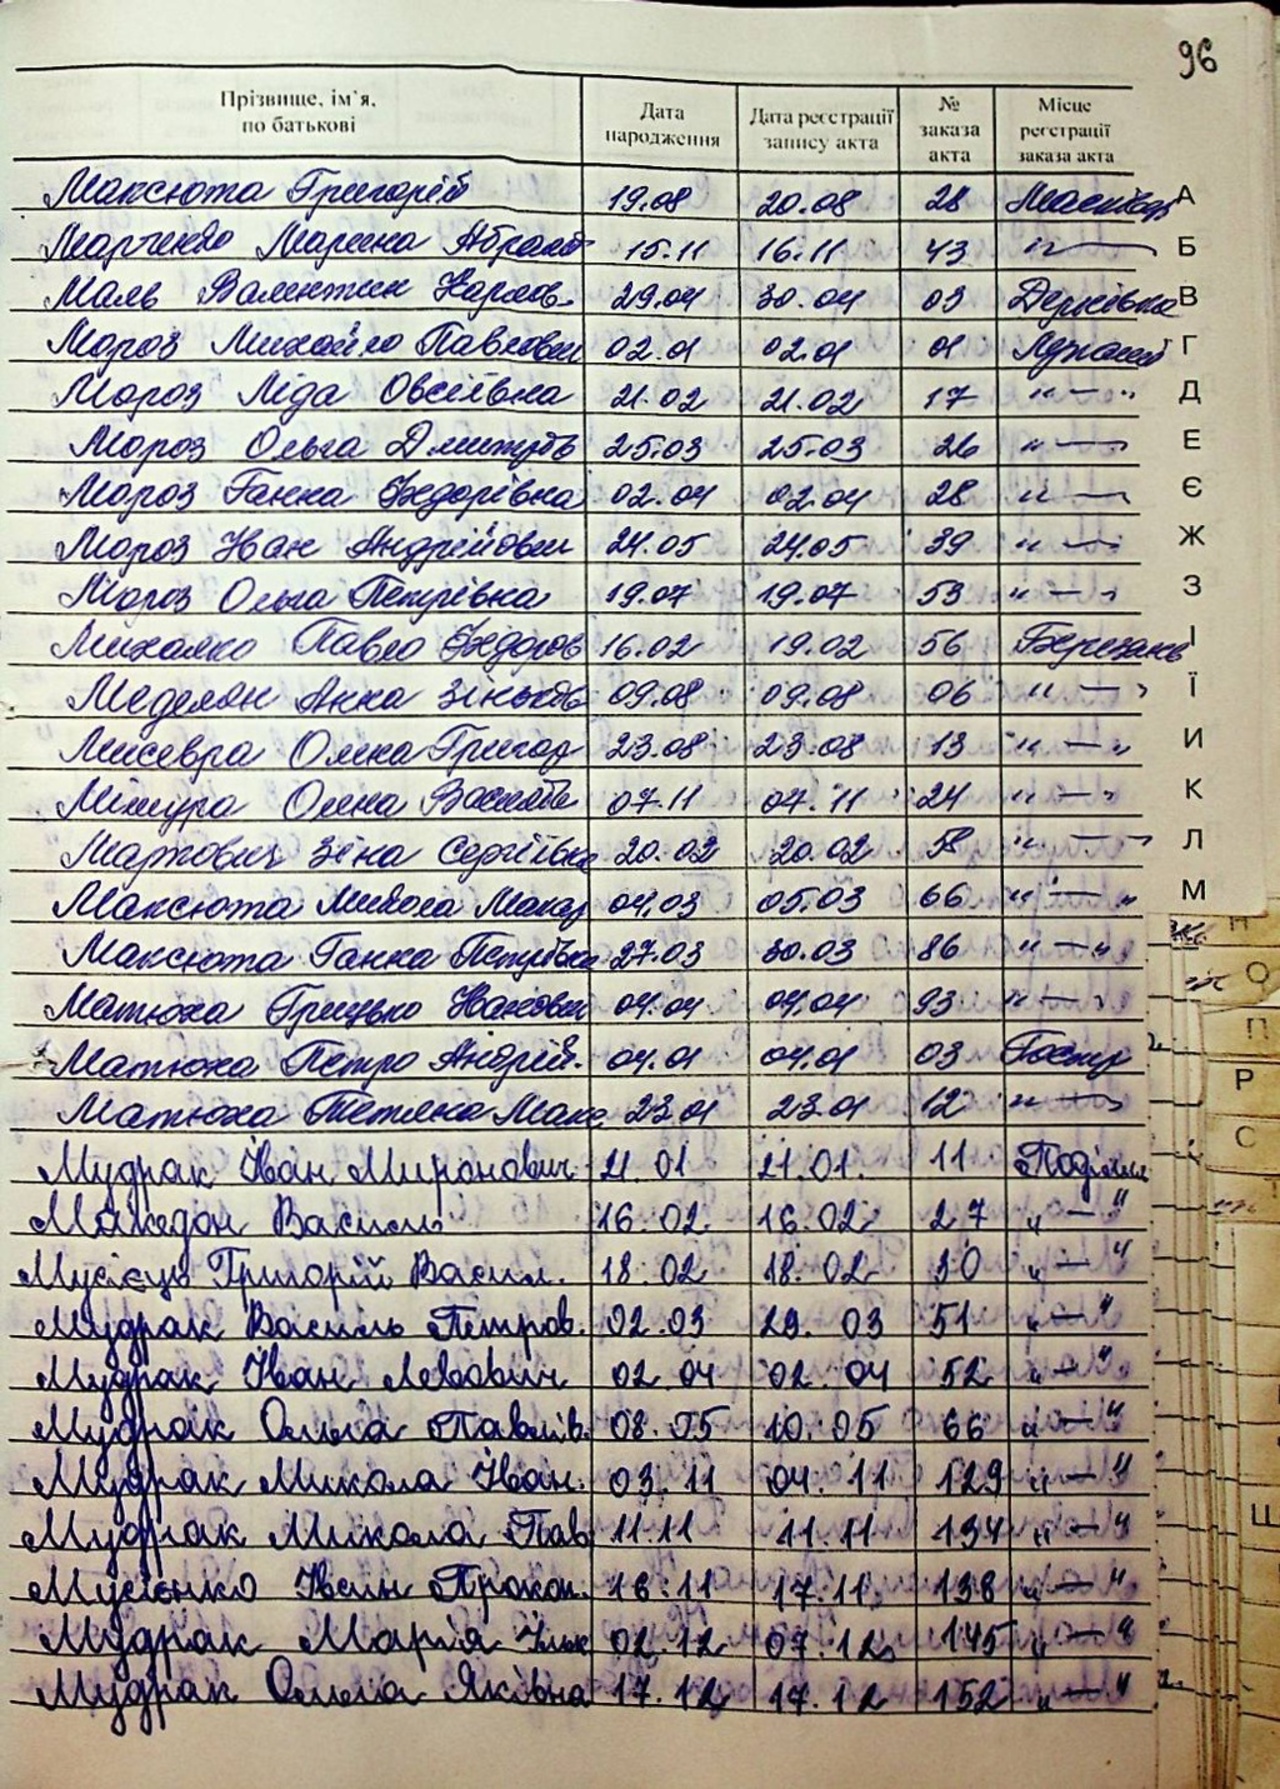 96
Прізвище, ім'я, по батькові Дата народження Дата реєстрації запису акта № заказа акта Місце реєстрації заказа акта
Максюта Григорій 19.08 20.08 28 А
Марченко Марина Абрамів 15.11 16.11 43 " — Б
Маль Валентин Карлов. 29.04 30.04 03 В
Мороз Михайло Павлович 02.01 02.01 01 Г
Мороз Ліда Овсіївна 21.02 21.02 17 " — " Д
Мороз Ольга Дмитрів 25.03 25.03 26 " — Е
Мороз Ганна Федорівна 02.04 02.04 28 " — Є
Мороз Іван Андрійович 24.05 24.05 39 " — Ж
Мороз Ольга Петрівна 19.07 19.07 53 " — " З
Михалко Павло Федоров 16.02 19.02 56 Березань І
Меделян Анна Зіньків 09.08 09.08 06 " — " Ї
Мисевра Олена Григор 23.08 23.08 13 " — " И
Олена Василів 07.11 07.11 24 " — " К
Мартович Зіна Сергіївна 20.02 20.02 58 " — Л
Максюта Микола Макар 04.03 05.03 66 " — " М
Максюта Ганна Петрівна 27.03 30.03 86 " — " Н
Матюха Грицько Іванович 04.04 04.04 93 " — " О
Матюха Петро Андрій. 04.01 04.01 03 П
Матюха Тетяна Макс 23.01 23.01 12 " — Р
Мудрак Іван Миронович 21.01 21.01. 11 С
Македон Василь 16.02. 16.02 27 " — "
Мусієць Григорій Васил. 18.02 18.02 30 " — "
Мудрак Василь Петров. 02.03 29.03 51 " — "
Мудрак Іван Левович 02.04 02.04 52 " — "
Мудрак Ольга Павлів. 08.05 10.05 66 " — "
Мудрак Микола Іван. 03.11 04.11 129 " — "
Мудрак Микола Пав 11.11 11.11 134 " — "
Мусієнко Іван Прокоп. 16.11 17.11. 138 " — "
Мудрак Марія 02.12 07.12 145 " — "
Мудрак Ольга Яківна 17.12 17.12 152 " — "